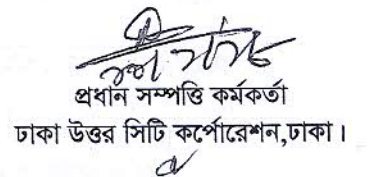 প্রধান সম্পত্তি কর্মকর্তা
ঢাকা উত্তর সিটি কর্পোরেশন,ঢাকা।